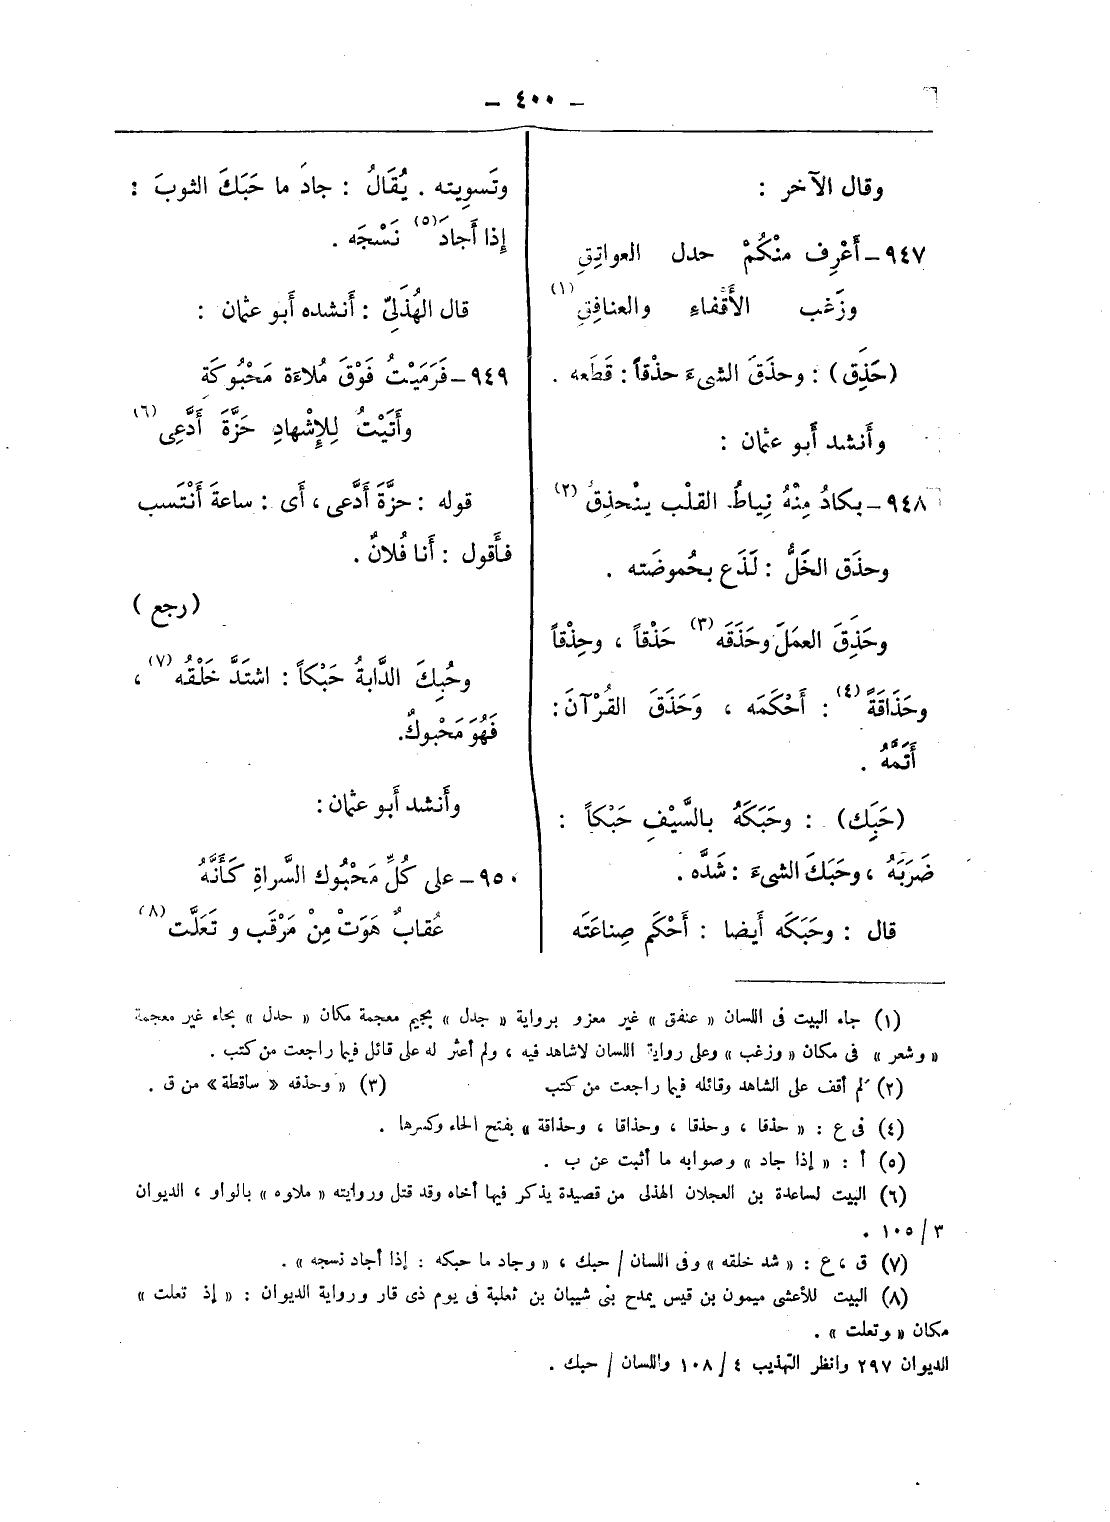 – ٤٠٠ –
وقال الآخر :
٩٤٧ – أَعْرِف منْكُمْ حدل العواتِقِ
وزَغب الأَقْفاءِ والعنافِقِ (١)
(حَذِق) : وحذَقَ الشىءَ حذْقاً : قَطَعه .
وأَنشد أَبو عثمان :
٩٤٨ – يكادُ مِنْهُ نِياطُ القلْب ينْحذِقُ (٢)
وحذَق الخَلُّ : لَذَع بحُموضَته .
وحَذِقَ العمَلَ وحَذَقَه (٣) حَذْقاً ، وحِذْقاً
وحَذَاقَةً (٤) : أَحْكَمَه ، وَحَذَقَ القُرْآنَ :
أَتَمَّهُ .
(حَبَِك) : وحَبَكَهُ بالسَّيْفِ حَبْكاً :
ضَرَبَهُ ، وحَبَكَ الشىءَ : شَدَّه .
قال : وحَبَكَه أَيضا : أَحْكَم صِناعَتَه
وتَسوِيته . يُقَالُ : جادَ ما حَبَكَ الثوبَ :
إِذا أَجادَ (٥) نَسْجَه .
قال الهُذَلِىّ : أَنشده أَبو عثمان :
٩٤٩ – فَرَمَيْتُ فَوْقَ مُلاءَة مَحْبُوكَةٍ
وأَتَيْتُ لِلإِشْهادِ حَزَّةَ أَدَّعِى (٦)
قوله : حزَّةَ أَدَّعى ، أَى : ساعةَ أَنْتَسب
فأَقول : أَنا فُلانٌ .
(رجع)
وحُبِكَ الدَّابةُ حَبْكاً : اشتدَّ خَلْقُه (٧) ،
فَهُوَ مَحْبوكٌ.
وأَنشد أَبو عثمان :
٩٥٠ – على كُلِّ مَحْبُوك السَّراةِ كَأَنَّهُ
عُقابٌ هَوَتْ مِنْ مَرْقَب و تَعَلَّت (٨)
(١) جاء البيت فى اللسان « عنفق » غير معزو برواية « جدل » بجيم معجمة مكان « حدل » بحاء غير معجمة
« وشعر » فى مكان « وزغب » وعلى رواية اللسان لاشاهد فيه ، ولم أعثر له على قائل فيما راجعت من كتب .
(٢) لم أقف على الشاهد وقائله فيما راجعت من كتب (٣) « وحذقه « ساقطة » من ق .
(٤) فى ع : « حذقا ، وحذقا ، وحذاقا ، وحذاقة » بفتح الحاء وكسرها .
(٥) أ : « إذا جاد » وصوابه ما أثبت عن ب .
(٦) البيت لساعدة بن العجلان الهذلى من قصيدة يذكر فيها أخاه وقد قتل وروايته « ملاوه » بالواو ، الديوان
٣ / ١٠٥ .
(٧) ق ، ع : « شد خلقه » وفى اللسان / حبك ، « وجاد ما حبكه : إذا أجاد نسجه » .
(٨) البيت للأعشى ميمون بن قيس يمدح بنى شيبان بن ثعلبة فى يوم ذى قار ورواية الديوان : « إذ تعلت »
مكان « وتعلت » .
الديوان ٢٩٧ وانظر التهذيب ٤ / ١٠٨ واللسان / حبك .